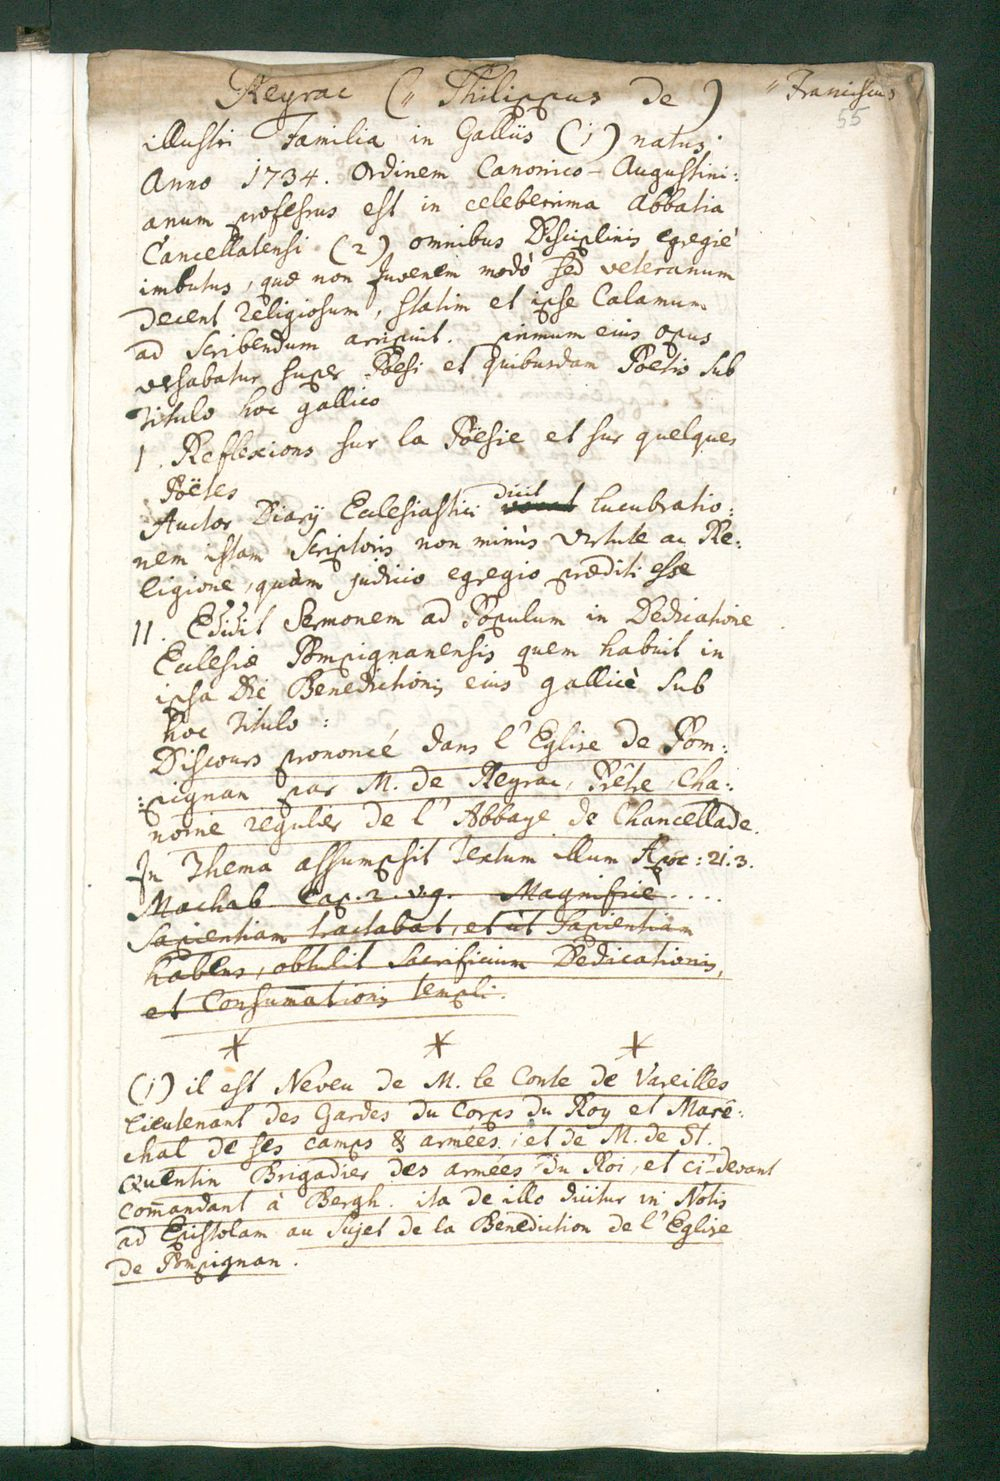 Reyrac (" Philippus de) " Franciscus
55
illustri Familia in Galliis (1) natus
Anno 1734. Ordinem Canonico-Augustini:
anum professus est in celeberrima Abbatia
Cancellatensi (2) omnibus Disciplinis egregiè
imbutus, quæ non Juvenem modò sed veteranum
decent religiosum, statim et ipse Calamum
ad scribendum arripuit. primum eius opus
versabatur super Poesi et quibusdam Poetis sub
titulo hoc gallico
I. Reflexions sur la Poësie et sur quelques
Poëtes
Auctor Diarij Ecclesiastici dicit lucubratio:
nem istam Scriptoris non minùs virtute ac Re:
ligione, quàm judicio egregio præditi esse
II. Edidit Sermonem ad Populum in Dedicatione
Ecclesiæ Pompignanensis quem habuit in
ipsa Die Benedictionis eius gallicè sub
hoc Titulo:
Discours prononcé dans l'Eglise de Pom:
:pignan par M. de Reyrac, Prêtre, Cha:
noine regulier de l'Abbaye de Chancellade.
In Thema assumpsit Textum illum Apoc: 21. 3.
Machab Cap. 2. v. 9. Magnificè....
Sapientiam tractabat, et ut Sapientiam
habens, obtulit Sacrificium Dedicationis,
et Consummationis templi.
* * *
(1) il est Neveu de M. le Conte de Vareilles
Lieutenant des Gardes du Corps du Roy et Maré:
chal de ses camps & armées; et de M. de St.
Quentin Brigadier des armées du Roi, et ci-devant
com̄andant à Bergh. ita de illo dicitur in Notis
ad Epistolam au Sujet de la Benediction de l'Eglise
de Pompignan.